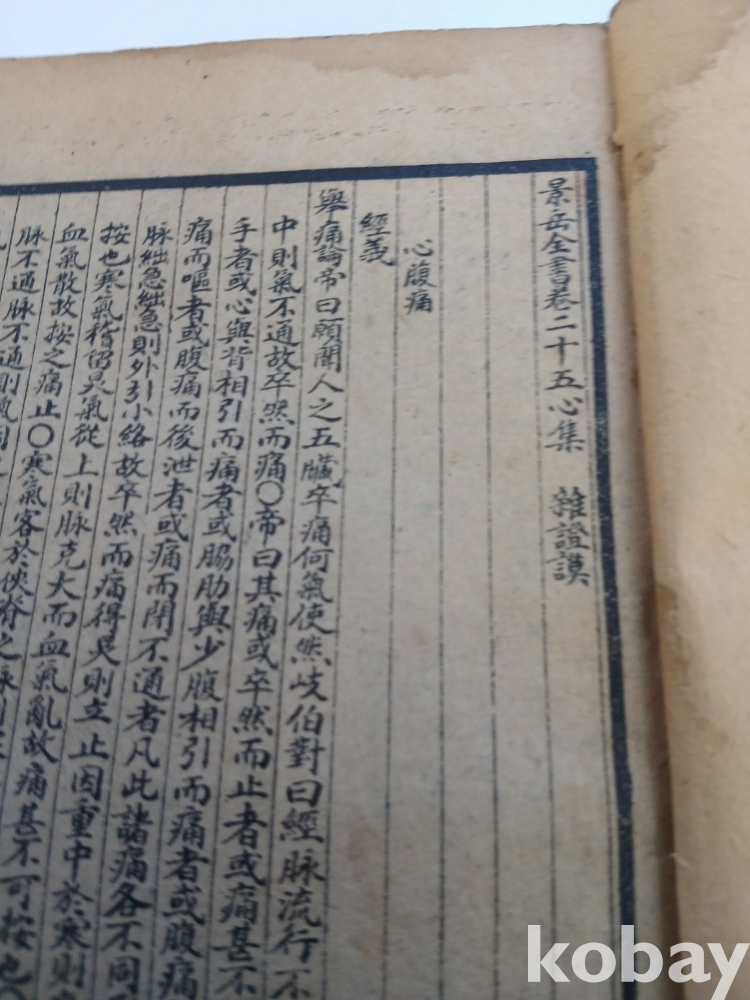 景岳全書卷二十五心集 雜證謨
心腹痛
經義
舉痛論帝曰願聞人之五臟卒痛何氣使然岐伯對曰經脉流行不
中則氣不通故卒然而痛〇帝曰其痛或卒然而止者或痛甚不
手者或心與背相引而痛者或脇肋與少腹相引而痛者或腹痛
痛而嘔者或腹痛而後泄者或痛而閉不通者凡此諸痛各不同
脉絀急絀急則外引小絡故卒然而痛得炅則立止因重中於寒則
按也寒氣稽留炅氣從上則脉充大而血氣亂故痛甚不可按也〇
血氣散故按之痛止〇寒氣客於俠脊之脉
脉不通脉不通則氣因
kobay